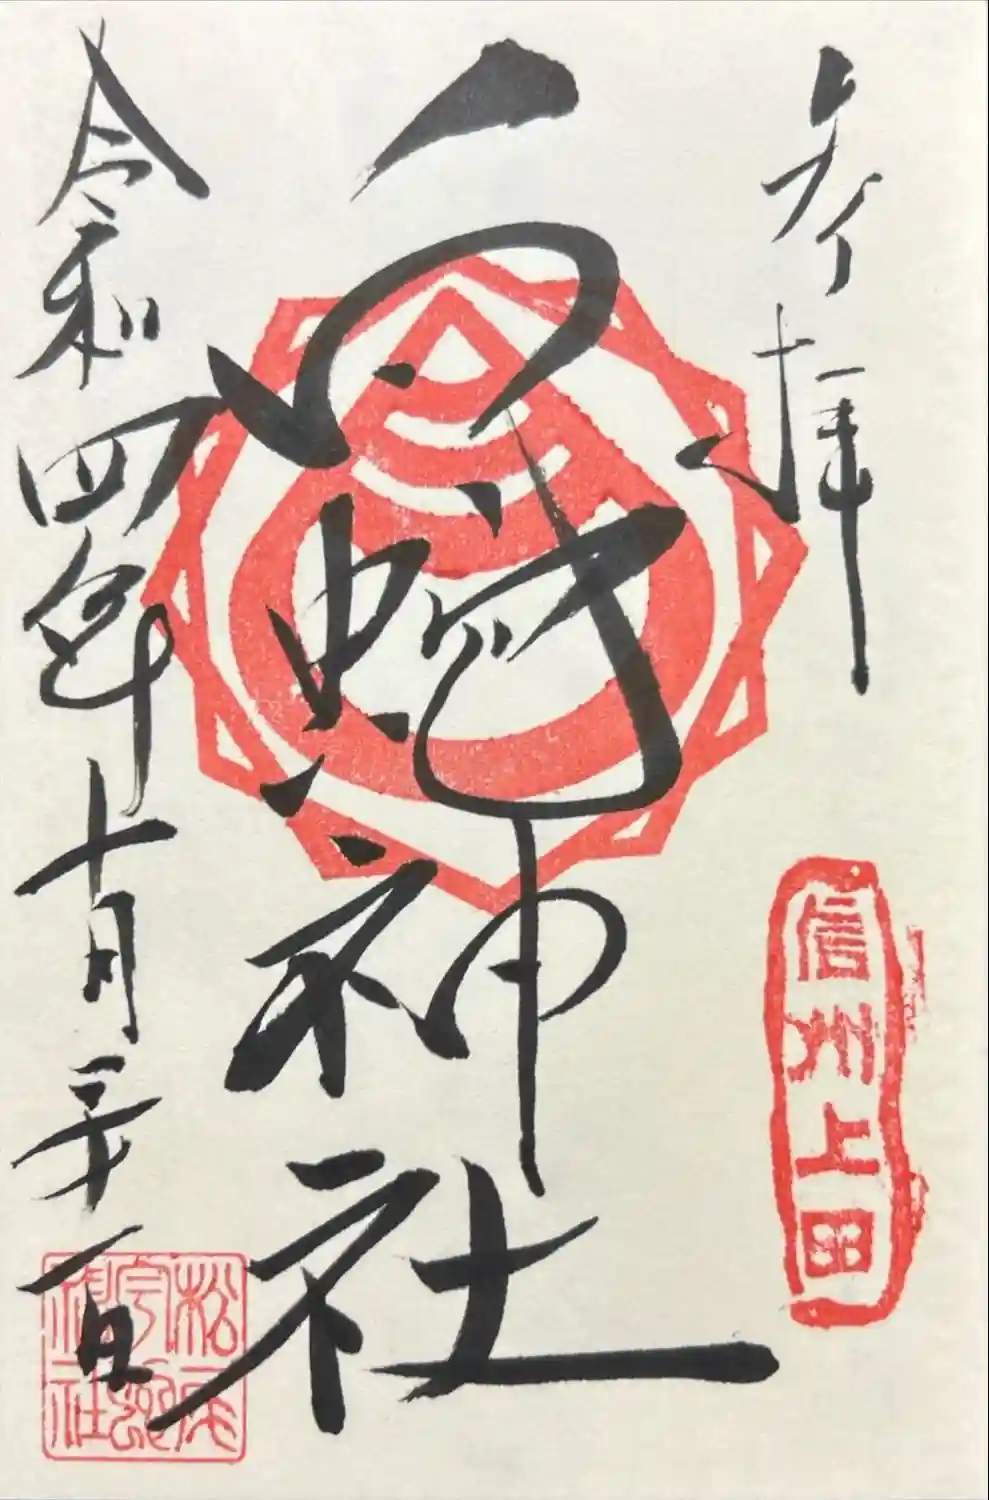 参拝
信州上田
白蛇神社
令和四年十月二十一日
松尾
宇蛇
神社